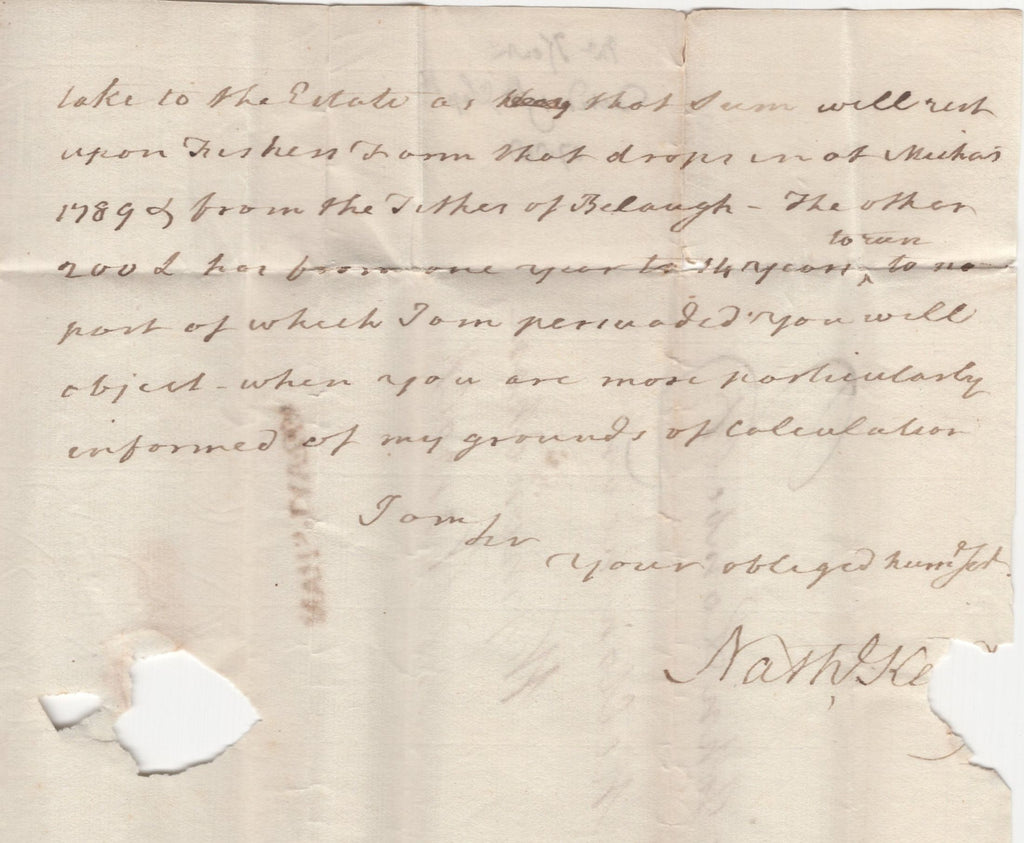 take to the Estate as that Sum will rest
upon Fishers Farm that drops in at Michas
1789 & from the Tithes of Belaugh - The other
to run
200£ has from one year to 14 years ^ to no
part of which I am persuaded you will
object - when you are more particularly
informed of my grounds of Calculation
I am
Sir
your obliged humᵉ Servᵗ
Nathˡ Ke